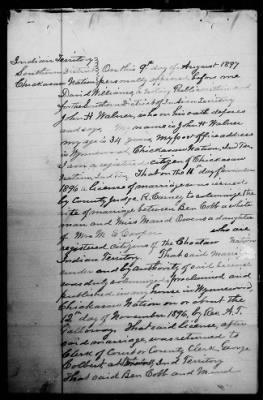 Indian Territory
Southern District } On this 9th day of August 1897
Chickasaw Nation personally appeared before me
David Williams, a Notary Public within and
for the Southern District of Indian Territory
John H Walner, who on his oath deposes
and says, My name is John H Walner
my age is 34 years, my post office address
is Wynnewood, Chickasaw Nation, Ind Ter
I am a registered citizen of Chickasaw
Nation, Ind Ter. That on the 11th day of
1896 a license of marriage was issued
by County Judge R. Carney to solemnize the
rite of marriage between Ben Cobb a white
man and Miss Maud Owens a daughter
of Mrs M. E. Cooper who are
registered citizens of the Choctaw Nation
Indian Territory. That said marriage
under and by authority of said license
was duly solemnized, proclaimed and
published in my house in Wynnewood,
Chickasaw Nation on or about the
2nd day of November 1896, by Rev A. T.
Galloway. That said license, after
said marriage, was returned to
Clerk of County Clerk George
Colbert at Ind Territory
That said Ben Cobb and Maud